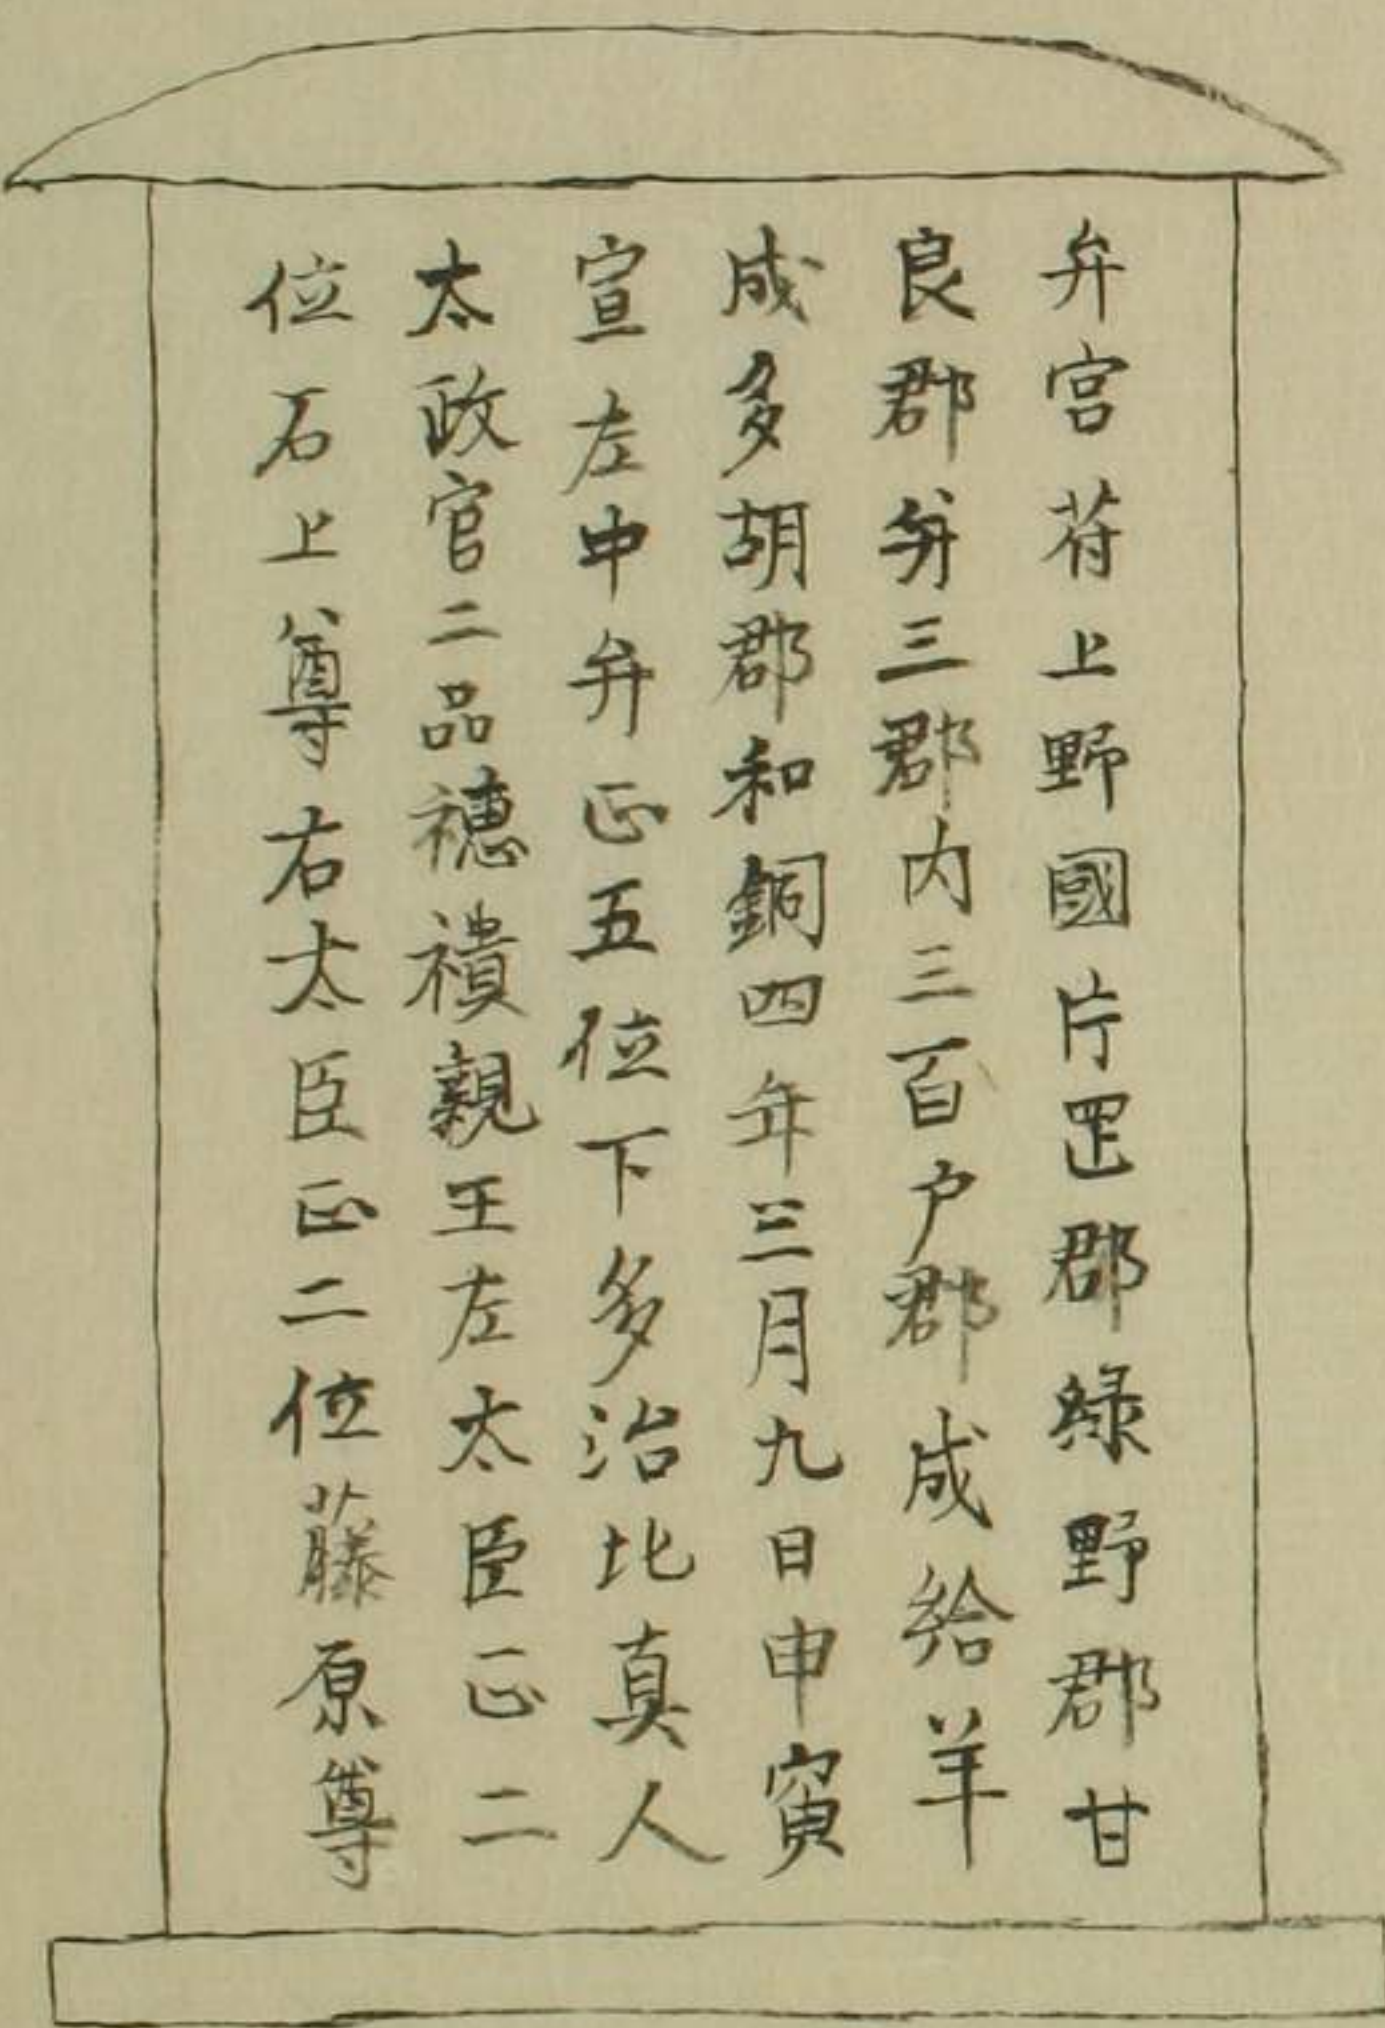 弁宮苻上野國片罡郡緑野郡甘
良郡并三郡内三百户郡成給羊
成多胡郡和銅四年三月九日甲寅
宣左中弁正五位下多治比真人
太政官二品穂積親王左太臣正二
位石上尊右太臣正二位藤原尊